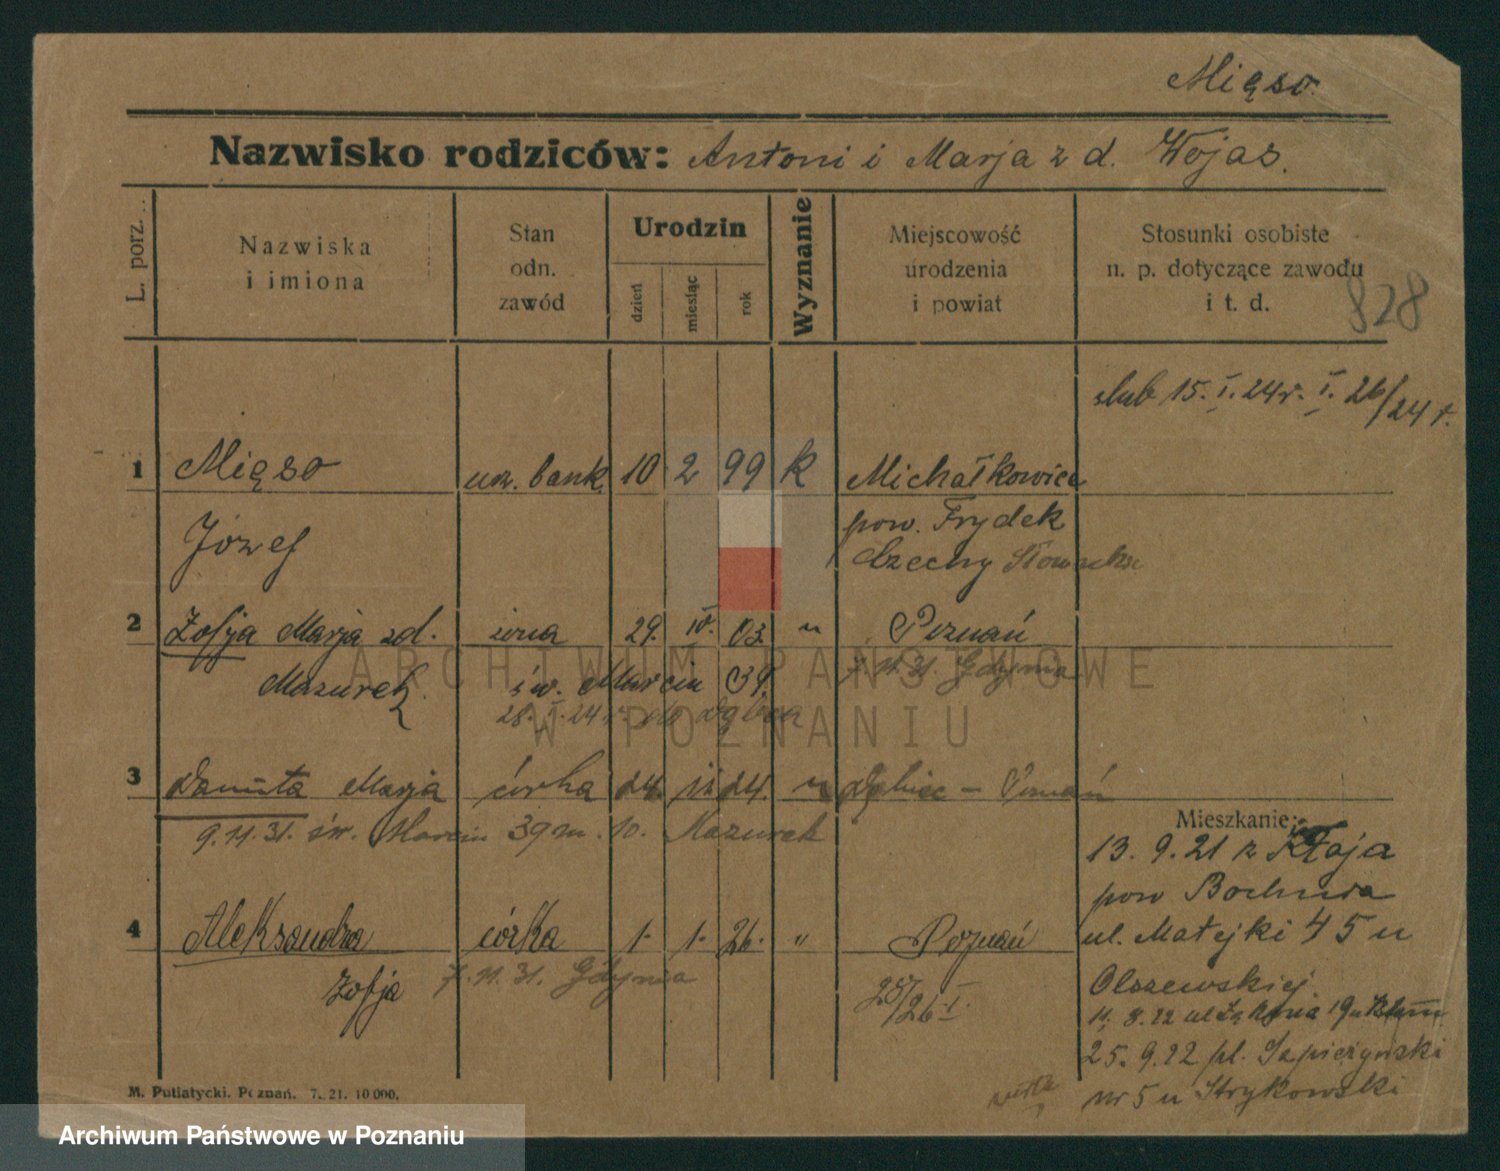 Mięso.
Nazwisko rodziców: Antoni i Marja z d. Wojas.
L. porz.
Nazwiska
i imiona
Stan
odn.
zawód
Urodzin
dzień
miesiąc
rok
Wyznanie
Miejscowość
urodzenia
i powiat
Stosunki osobiste
n. p. dotyczące zawodu
i t. d.
828
ślub 15. I. 24 r. I. 26/24 r.
1 Mięso urz. bank. 10 2 99 k Michałkowice
Józef
pow. Frydek
Czechy
2 Zofja Marja zd. żona 29. IV. 03. " Poznań
Mazurek św. Marcin 39.
7.11.31. Gdynia
28. I. 24 r.
3 Danuta Marja córka 24. 24. " Dębiec - Poznań
9.11.31. św. Marcin 39 m. 10. Mazurek
Mieszkanie:
13. 9. 21 z Kłaja
pow Bochnia
ul. Matejki 45 u
Olszewskiej
4 Aleksandra córka 1. 1. 26. " Poznań
Zofja 7.11.31. Gdynia
28/26 I.
11. 8. 22 ul 19 u
25. 9. 22 pl. Sapieżyński
nr 5 u Strykowski
M. Putiatycki. Poznań. 7. 21. 10 000.
ARCHIWUM PAŃSTWOWE
W POZNANIU
Archiwum Państwowe w Poznaniu